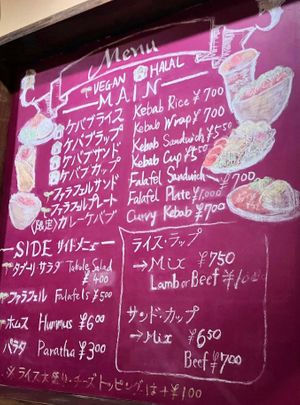 Menu
VEGAN HALAL
MAIN
ケバブライス Kebab Rice ¥700
ケバブラップ Kebab Wrap ¥700
ケバブサンド Kebab Sandwich ¥550
ケバブカップ Kebab Cup ¥550
ファラフェルサンド Falafel Sandwich ¥700
ファラフェルプレート Falafel Plate ¥1,000
(限定) カレーケバブ Curry Kebab ¥700
SIDE サイドメニュー
タブーリサラダ Tabule Salad
¥400
ファラフェル Falafels ¥500
ホムス Hummus ¥600
パラタ Paratha ¥300
ライス・ラップ
→Mix ¥750
Lamb or Beef
サンド・カップ
→Mix ¥650
Beef ¥700
※ライス大盛り・チーズトッピングは+¥100